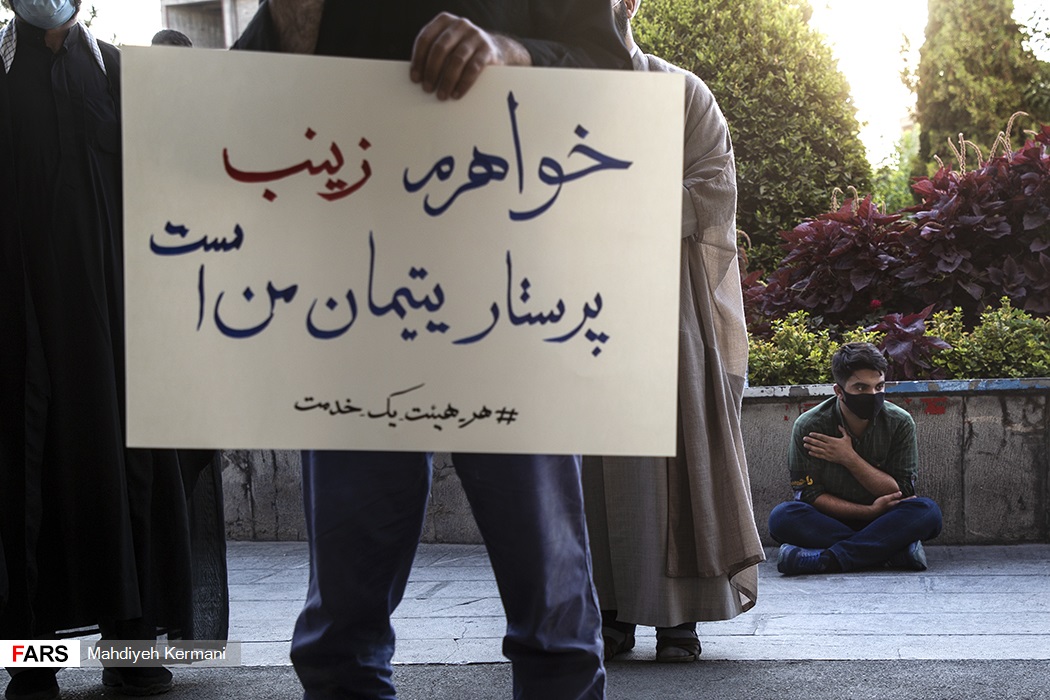 خواهرم زینب
پرستار یتیمان من است
#هر_هیئت_یک_خدمت
FARS Mahdiyeh Kermani